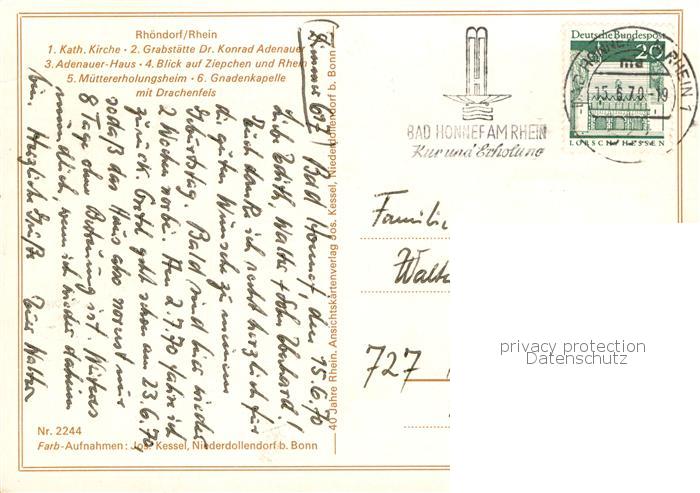 Rhöndorf/Rhein
1. Kath. Kirche · 2. Grabstätte Dr. Konrad Adenauer
3. Adenauer-Haus · 4. Blick auf Ziepchen und Rhein
5. Müttererholungsheim · 6. Gnadenkapelle
mit Drachenfels
(Zimmer 617) Bad Honnef, den 15.6.70
Liebe Edith, Walter + Sohn Eberhard!
Euch danke ich recht herzlich für
die guten Wünsche zu meinem
Geburtstag. Bald sind hier wieder
2 Wochen vorbei. Am 2.7.70 fahre ich
zurück. geht schon am 23.6.70,
sodaß das Haus also vorerst nur
8 Tage ohne Betreuung ist. Weiteres
mündlich, wenn ich wieder daheim
bin. Herzliche Grüße Euer Walter
Nr. 2244
Farb-Aufnahmen: Jos. Kessel, Niederdollendorf b. Bonn
40 Jahre Rhein. Ansichtskartenverlag Jos. Kessel, Niederdollendorf b. Bonn
BAD HONNEF AM RHEIN
Kur und Erholung
HONNEF RHEIN 1
15.6.70-19
Deutsche Bundespost
20
LORSCH/HESSEN
Familie
Walt
727
privacy protection
Datenschutz